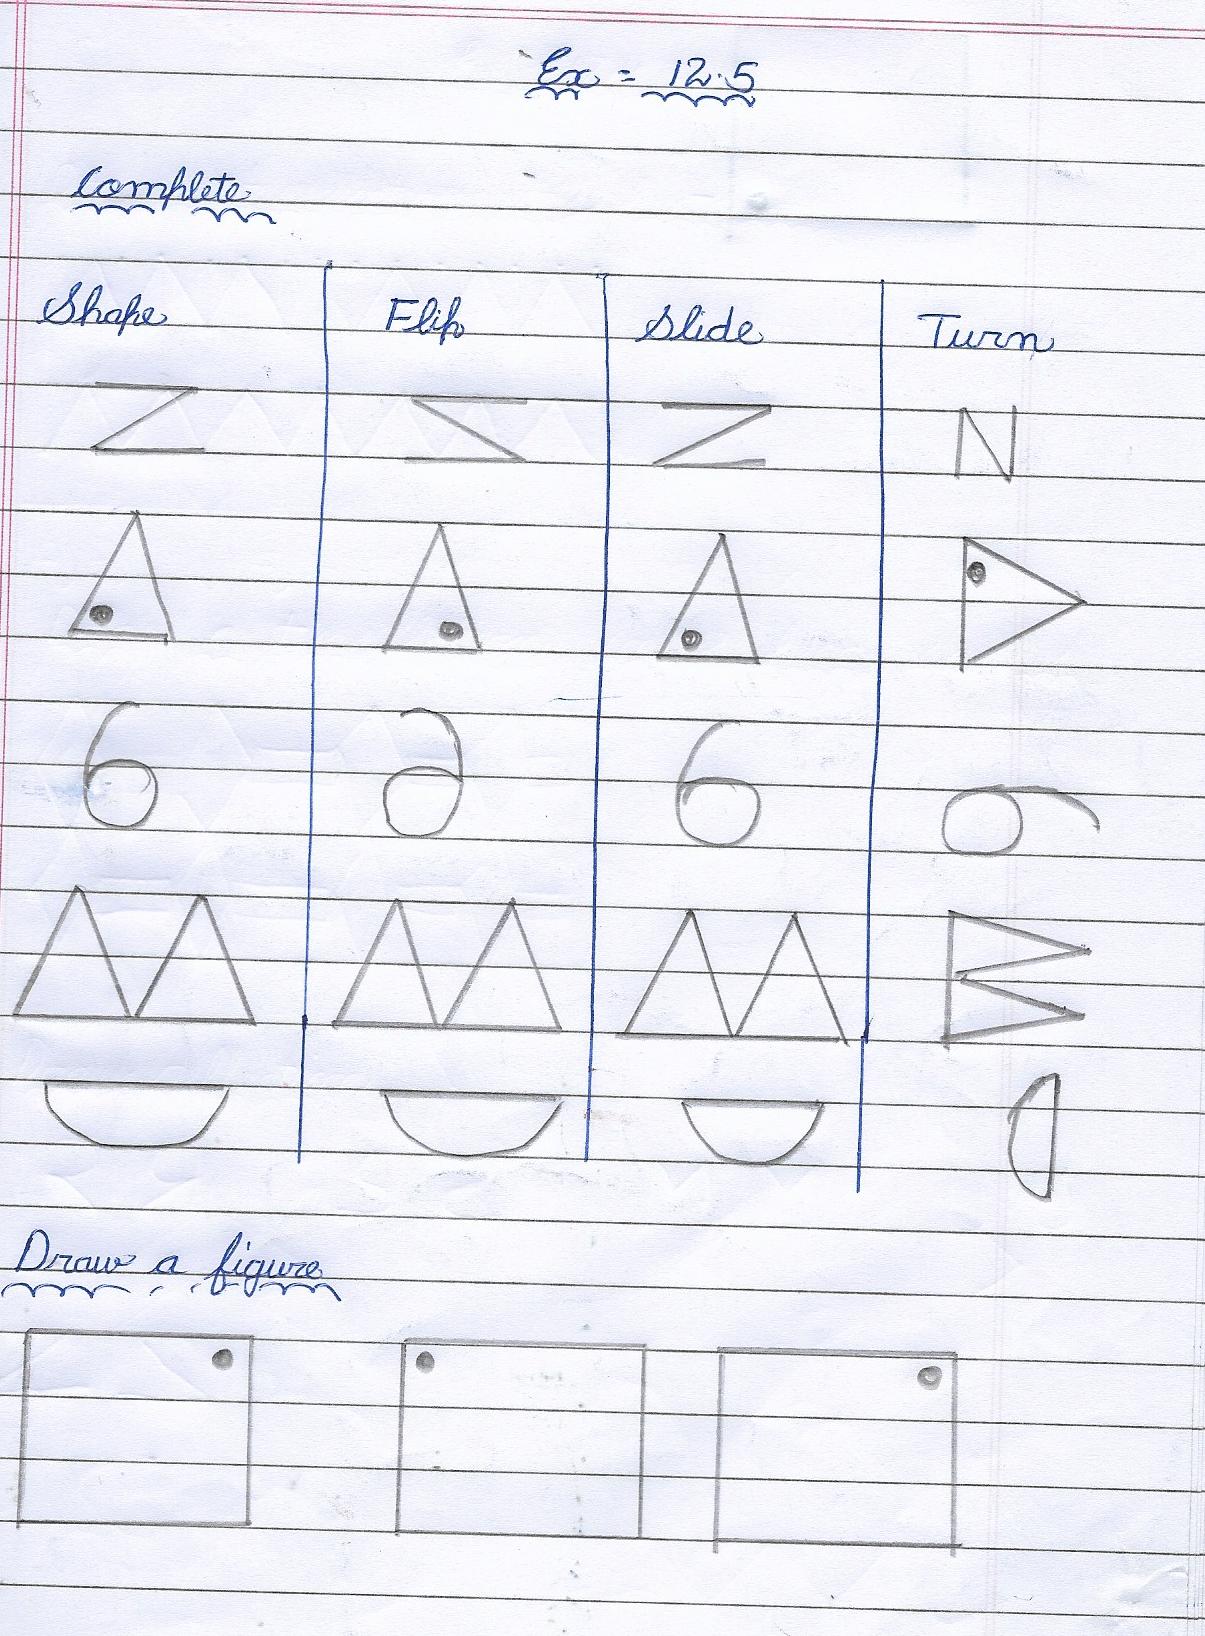 Ex = 12.5
Complete
Shape Flip Slide Turn
Z Z N
6 6
Draw a figure